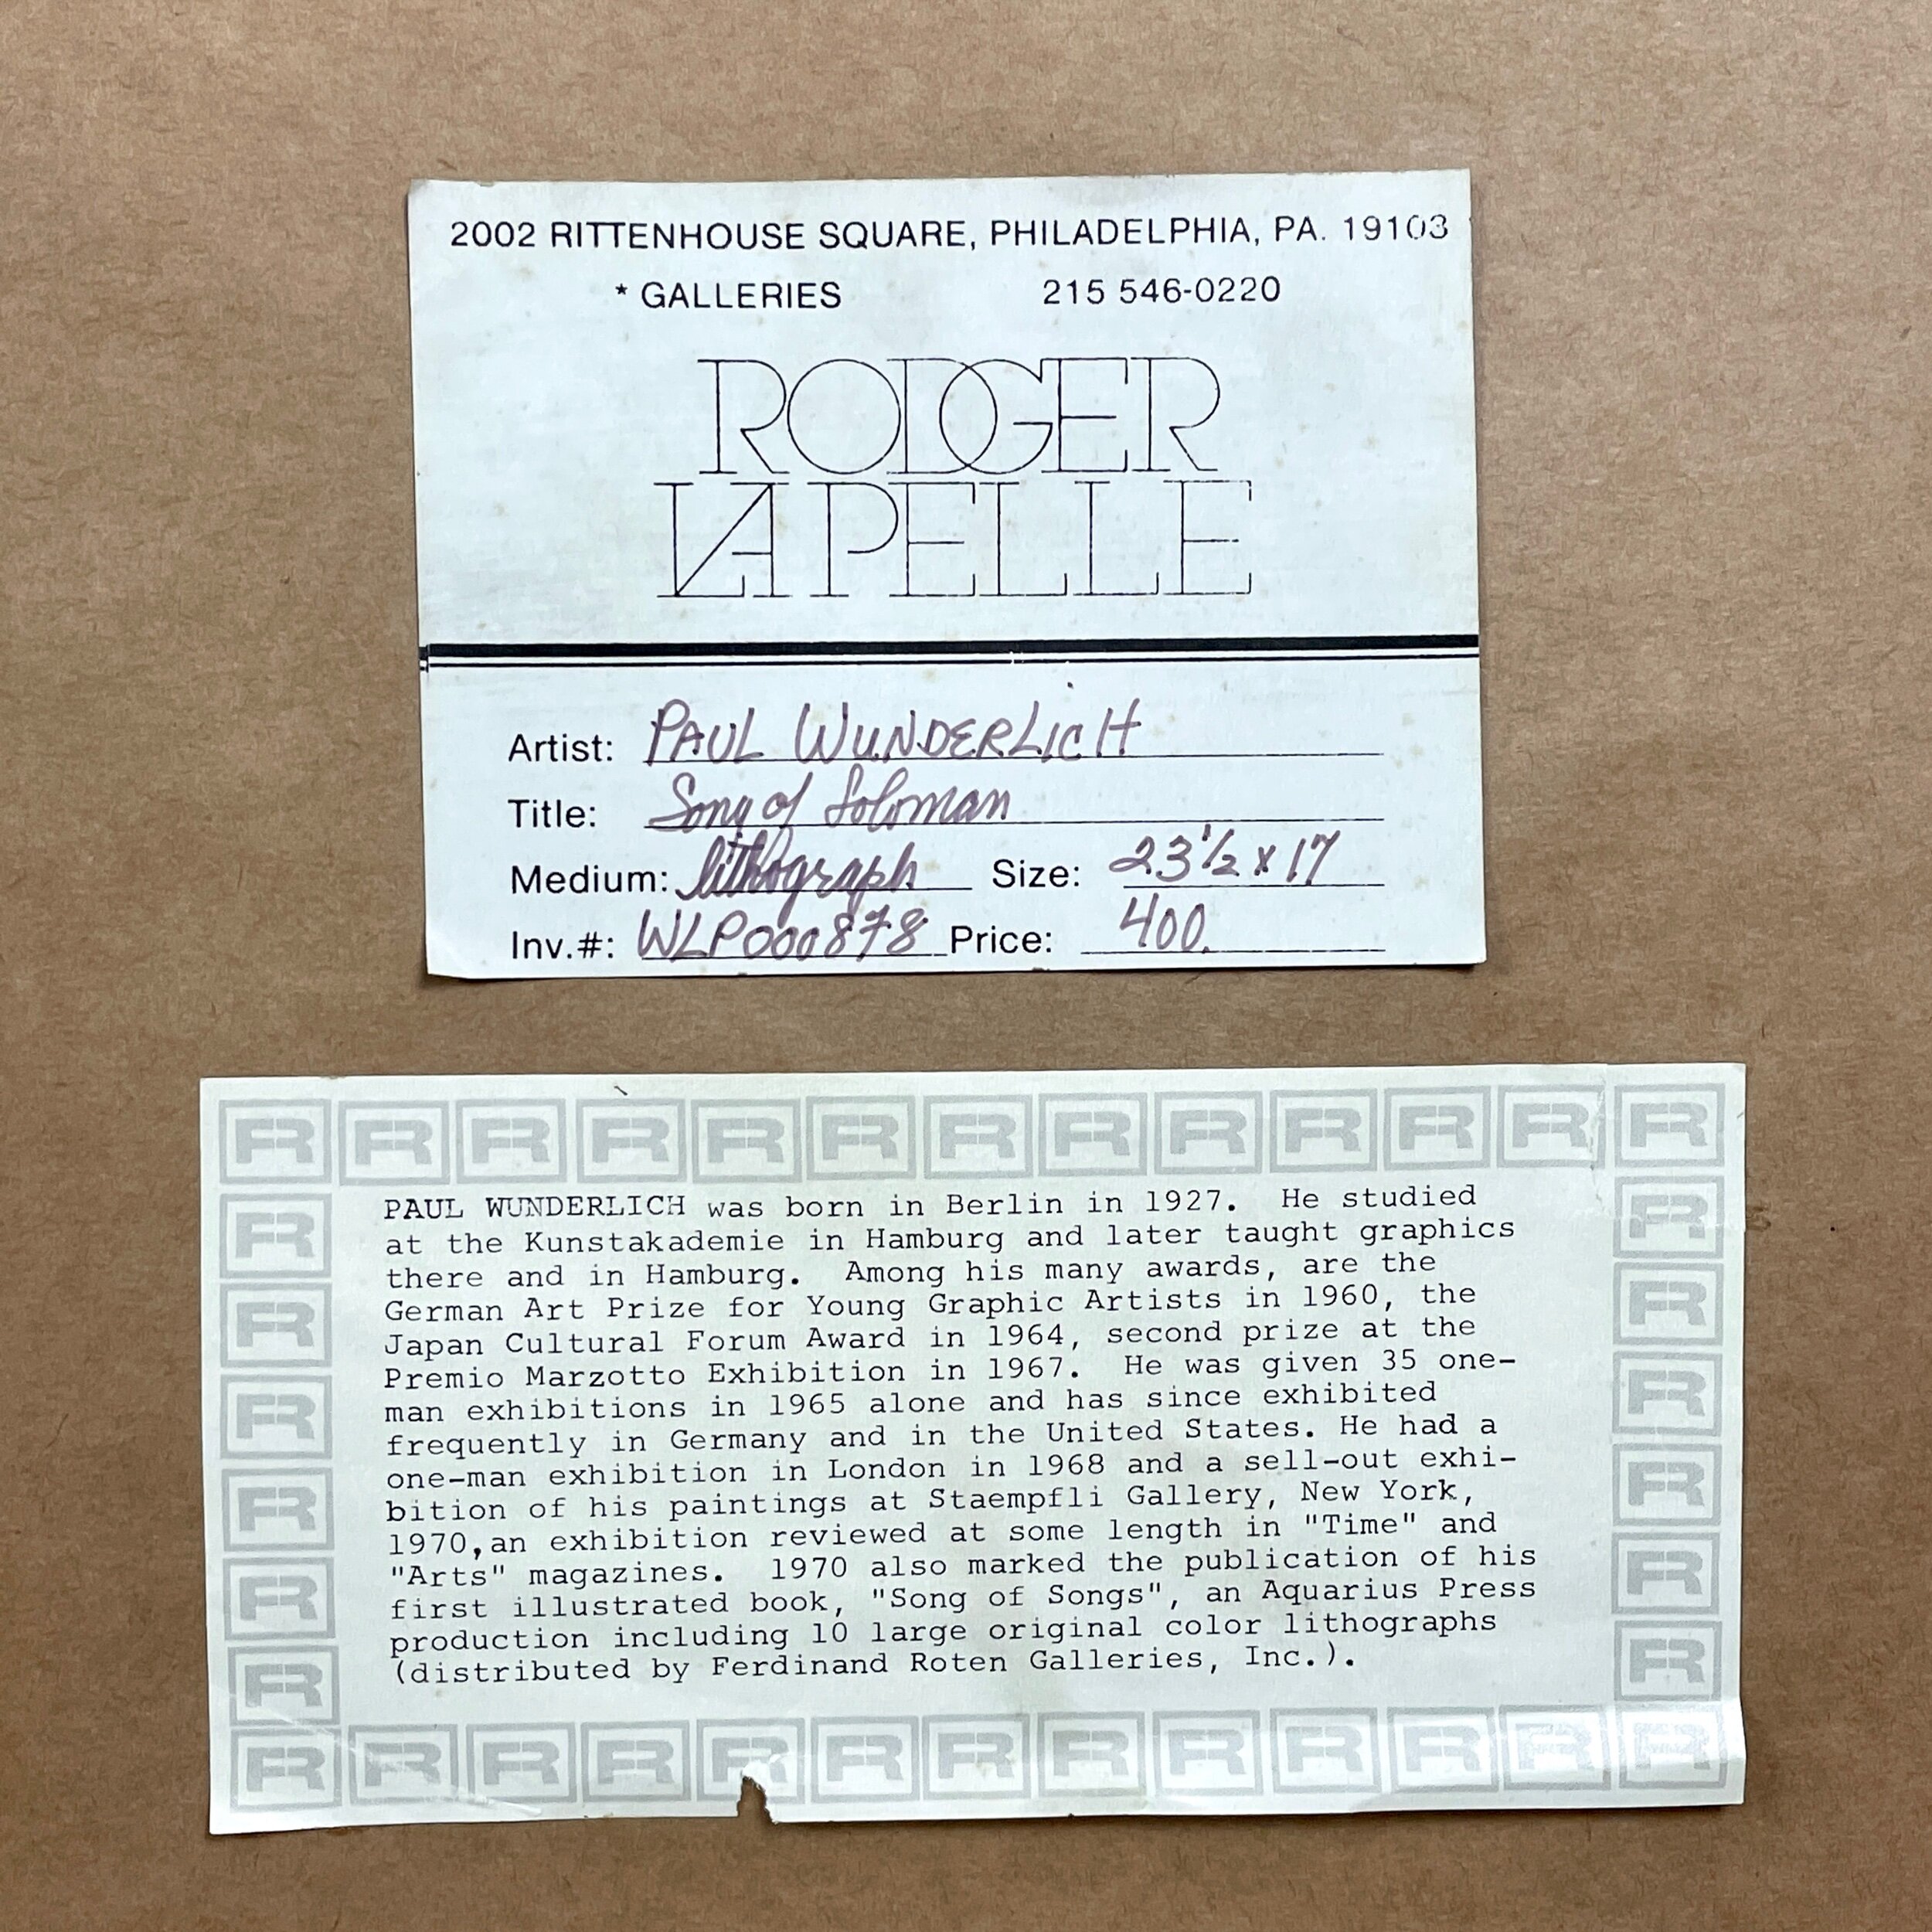 2002 RITTENHOUSE SQUARE, PHILADELPHIA, PA. 19103
* GALLERIES 215 546-0220
RODGER
LAPELLE
Artist: PAUL WUNDERLICH
Title: Song of Soloman
Medium: lithograph Size: 23 1/2 x 17
Inv.#: WLP000878 Price: 400.
R R R R R R R R R R R R R
PAUL WUNDERLICH was born in Berlin in 1927. He studied
at the Kunstakademie in Hamburg and later taught graphics
there and in Hamburg. Among his many awards, are the
German Art Prize for Young Graphic Artists in 1960, the
Japan Cultural Forum Award in 1964, second prize at the
Premio Marzotto Exhibition in 1967. He was given 35 one-
man exhibitions in 1965 alone and has since exhibited
frequently in Germany and in the United States. He had a
one-man exhibition in London in 1968 and a sell-out exhi-
bition of his paintings at Staempfli Gallery, New York,
1970,an exhibition reviewed at some length in "Time" and
"Arts" magazines. 1970 also marked the publication of his
first illustrated book, "Song of Songs", an Aquarius Press
production including 10 large original color lithographs
(distributed by Ferdinand Roten Galleries, Inc.).
R R R R R R R R R R R R R